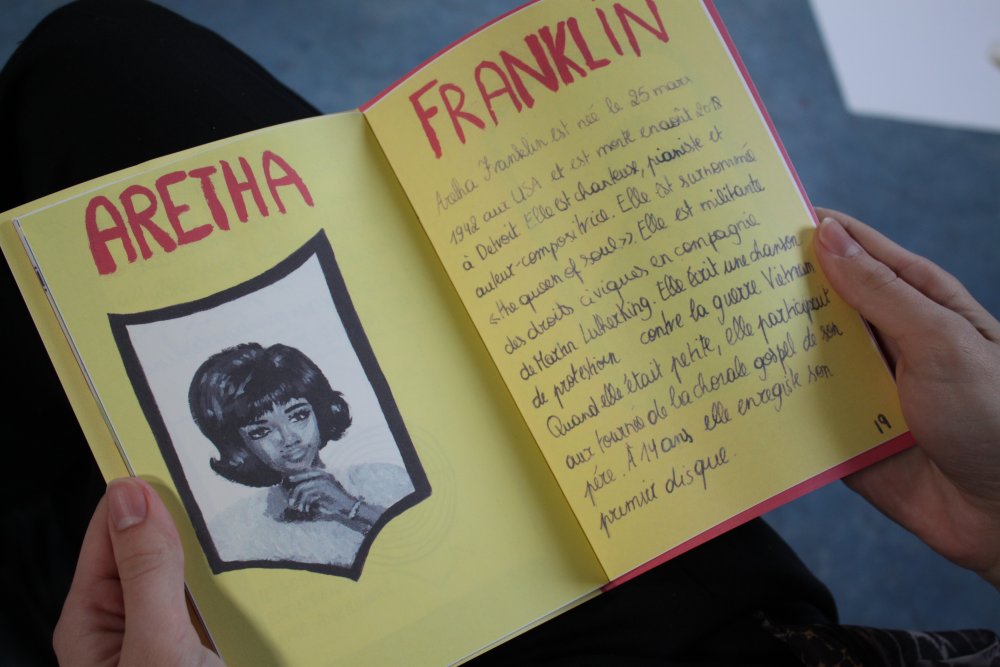 ARETHA
FRANKLIN
Aretha Franklin est née le 25 mars
1942 aux USA et est morte en août 2018
à Detroit. Elle est chanteuse, pianiste et
auteur-compositrice. Elle est surnommée
«the queen of soul». Elle est militante
des droits civiques en compagnie
de Martin Luther king. Elle écrit une chanson
de protestation contre la guerre Vietnam
Quand elle était petite, elle participait
aux tournée de la chorale gospel de son
père. À 14 ans elle enregiste son
premier disque.
19